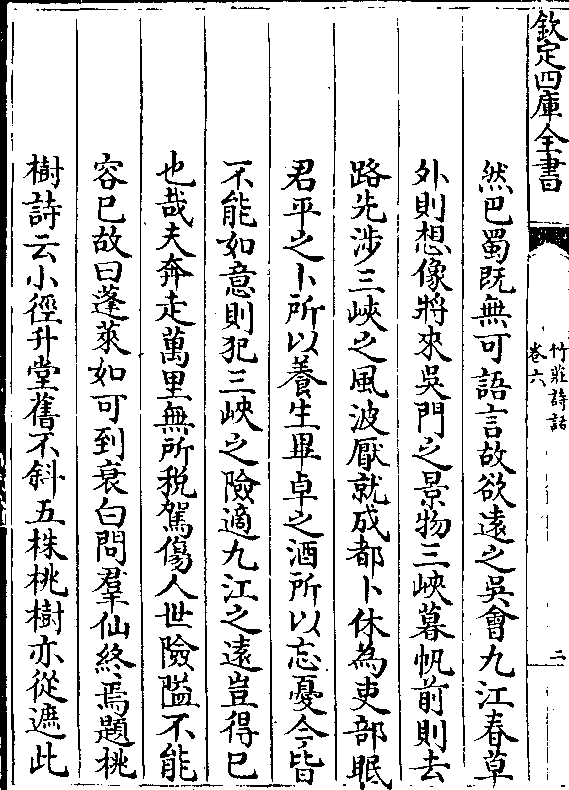 欽定四庫全書
竹莊詩話
卷六
二
然巴蜀既無可語言故欲遠之吳會九江春草
外則想像將來吳門之景物三峽暮帆前則去
路先涉三峽之風波厭就成都卜休為吏部眠
君平之卜所以養生畢卓之酒所以忘憂今皆
不能如意則犯三峽之險適九江之遠豈得已
也哉夫奔走萬里無所稅駕傷人世險隘不能
容已故曰蓬萊如可到衰白問羣仙終焉題桃
樹詩云小徑升堂舊不斜五株桃樹亦從遮此